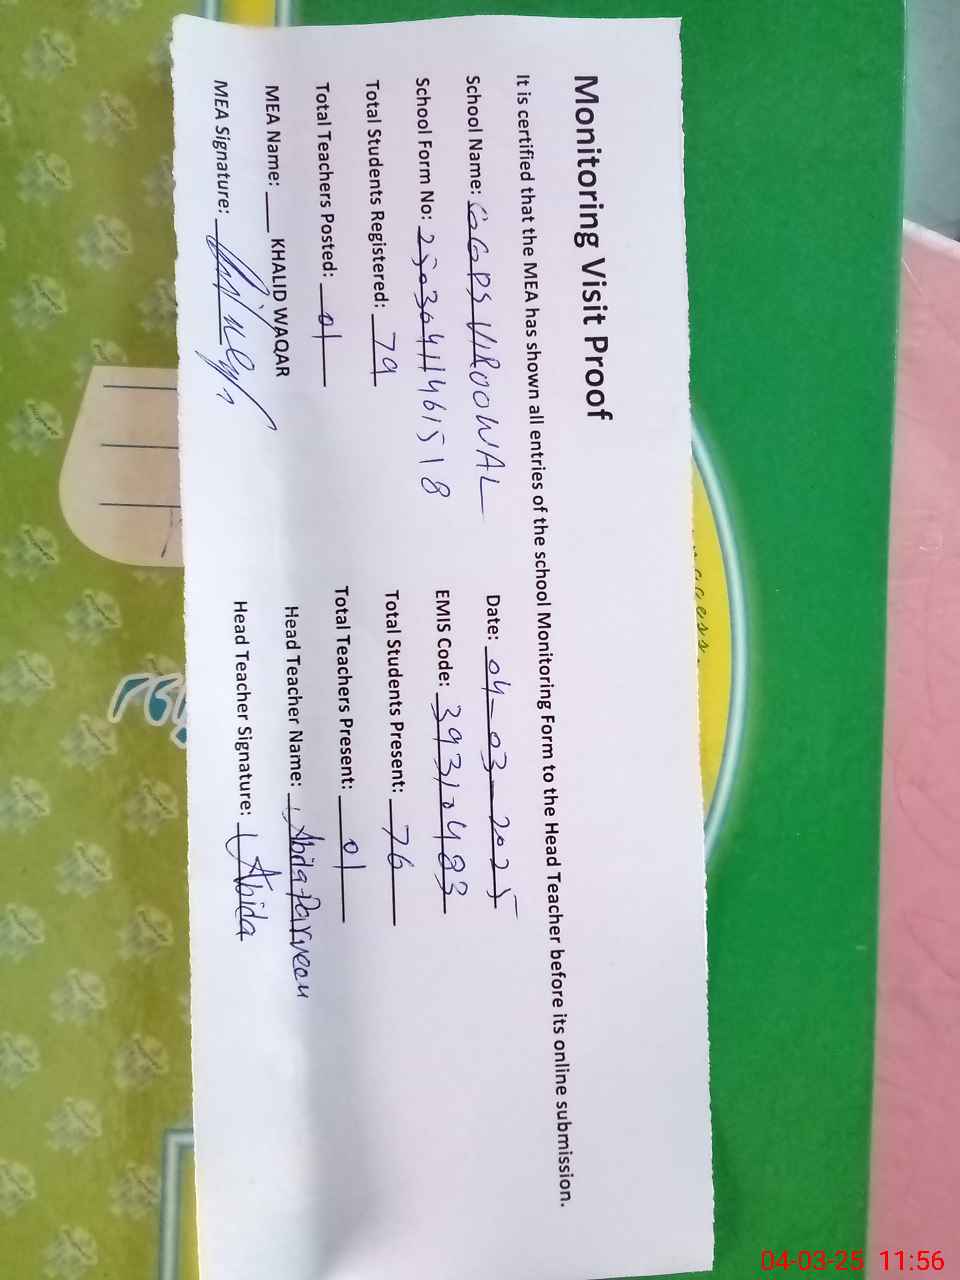 Monitoring Visit Proof
It is certified that the MEA has shown all entries of the school Monitoring Form to the Head Teacher before its online submission.
School Name: GGPS VIROOWAL Date: 04-03-2025
School Form No: 25030411461518 EMIS Code: 39310483
Total Students Registered: 79 Total Students Present: 76
Total Teachers Posted: 01 Total Teachers Present: 01
MEA Name: KHALID WAQAR Head Teacher Name: Abida Parveen
MEA Signature: Head Teacher Signature: Abida
04-03-25 11:56